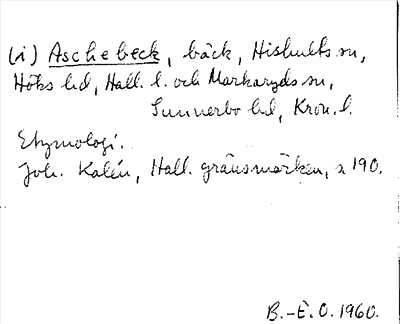 (i) Aschebeck, bäck, Hishults sn,
Höks hd, Hall. l. och Markaryds sn,
Sunnerbo hd, Kron. l.
Etymologi.
Joh. Kalén, Hall. gränsmärken, s 190.
B.-E. O. 1960.